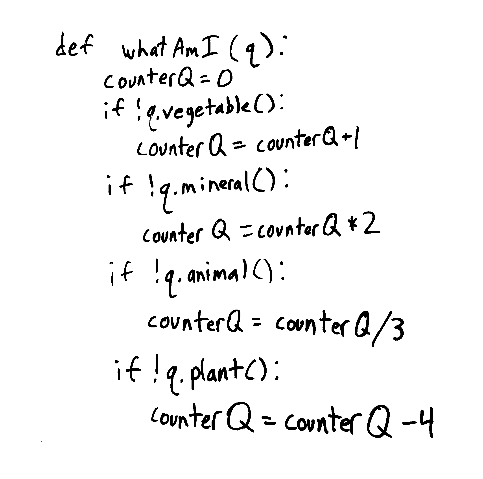 def whatAmI(q):
counterQ = 0
if !q.vegetable():
counterQ = counterQ+1
if !q.mineral():
counterQ = counterQ*2
if !q.animal():
counterQ = counterQ/3
if !q.plant():
counterQ = counterQ-4